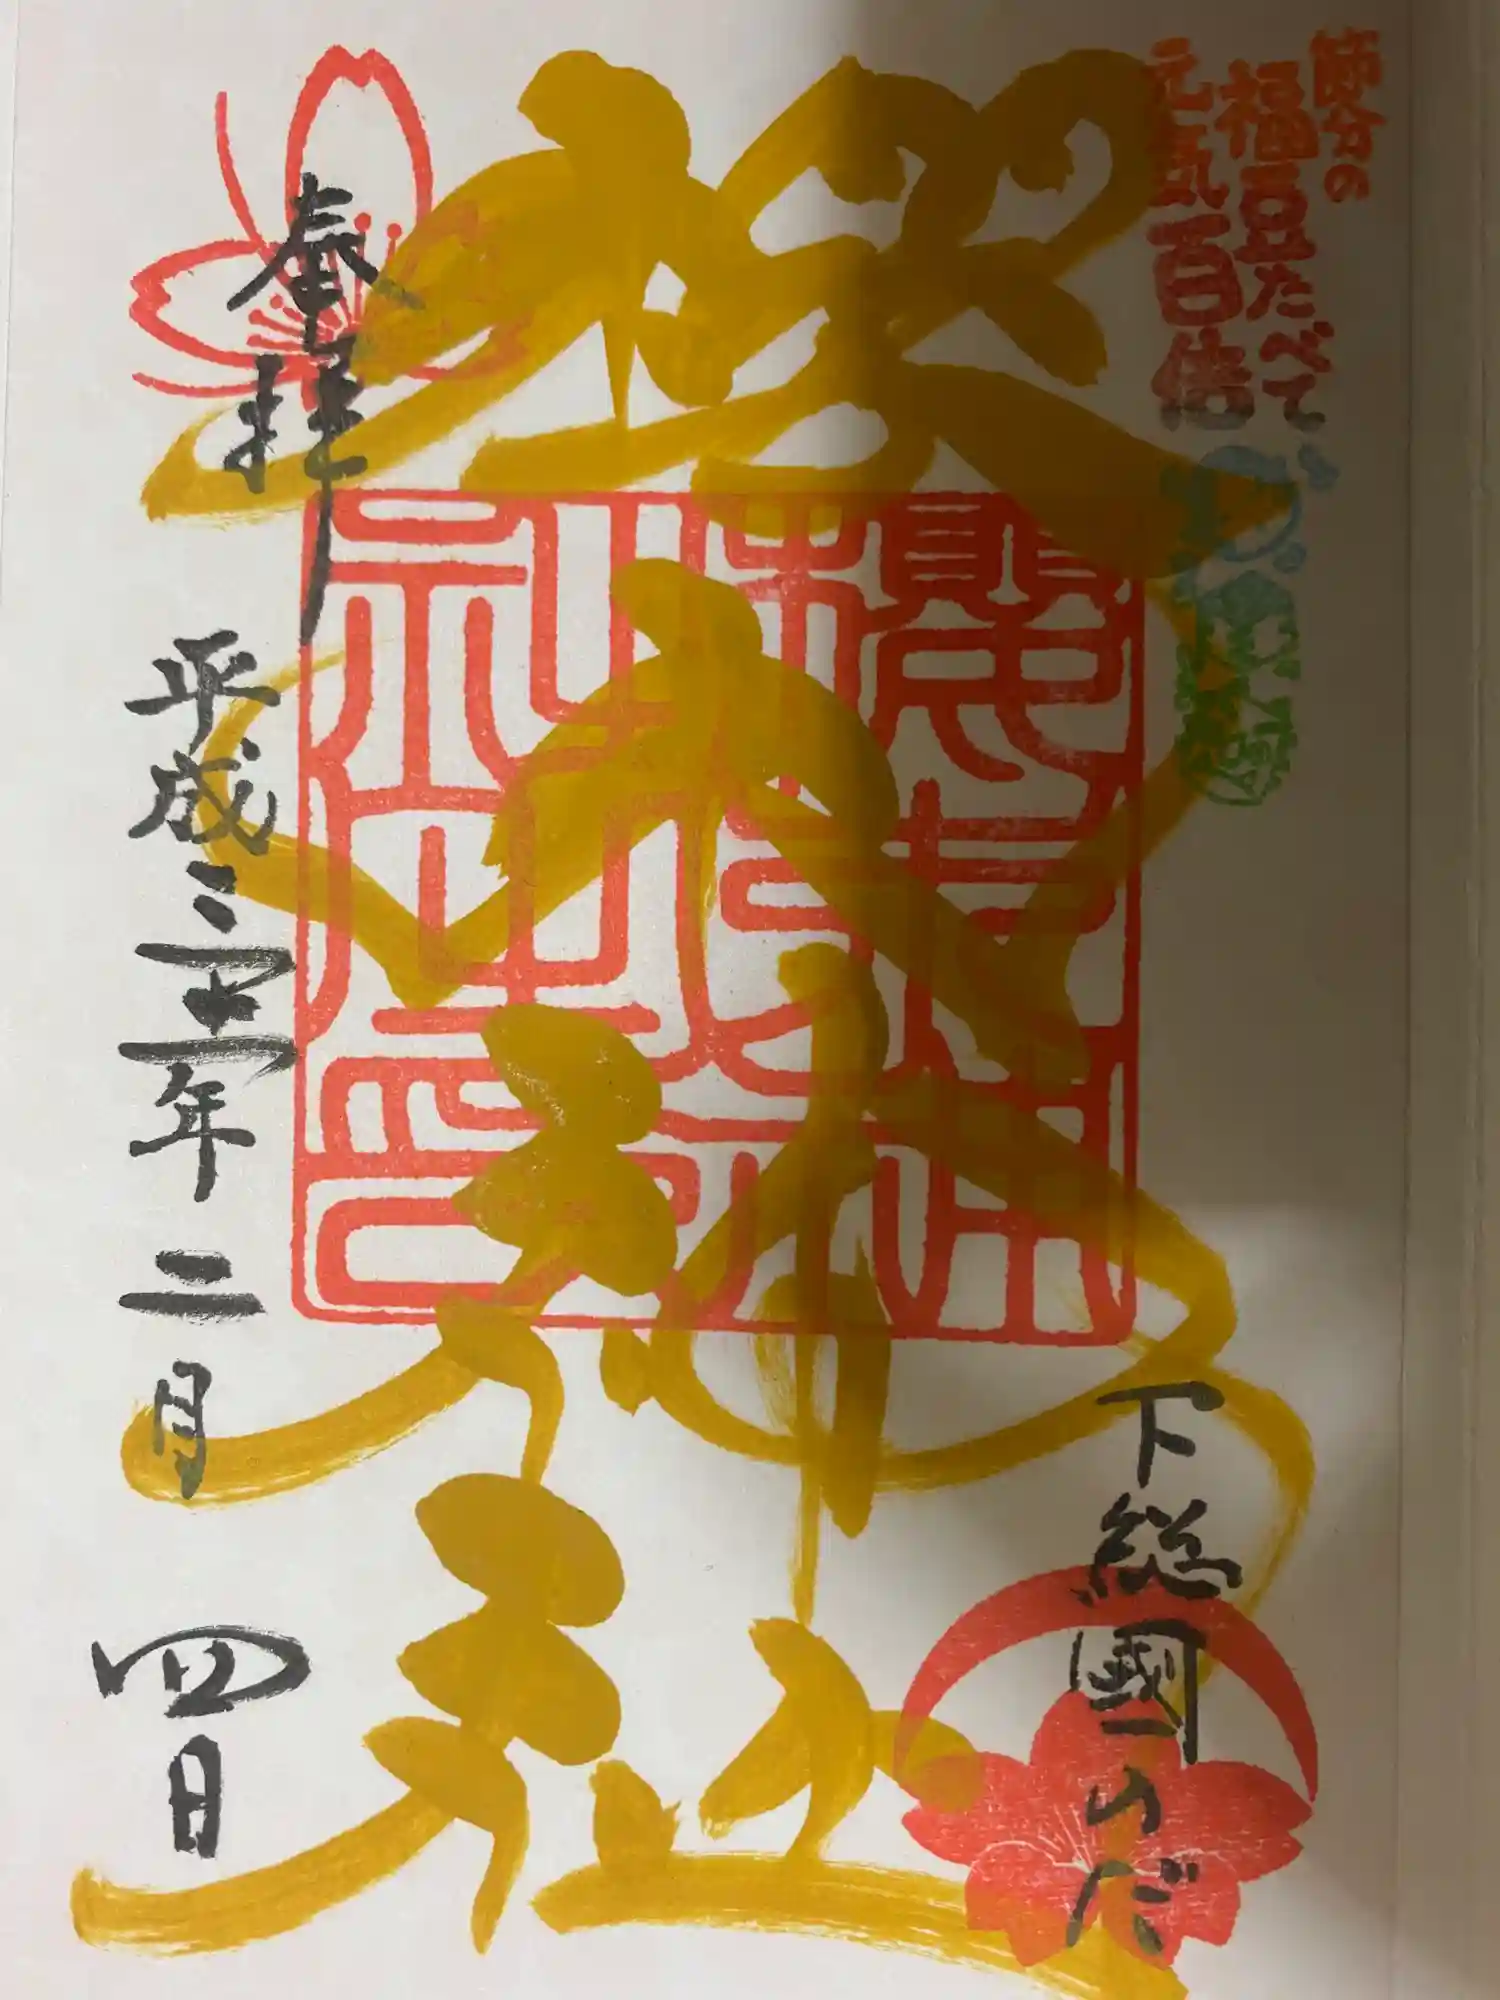 節分の
福豆たべて
元気百倍
下総國のだ
櫻木神社
奉拝
平成三十一年二月四日